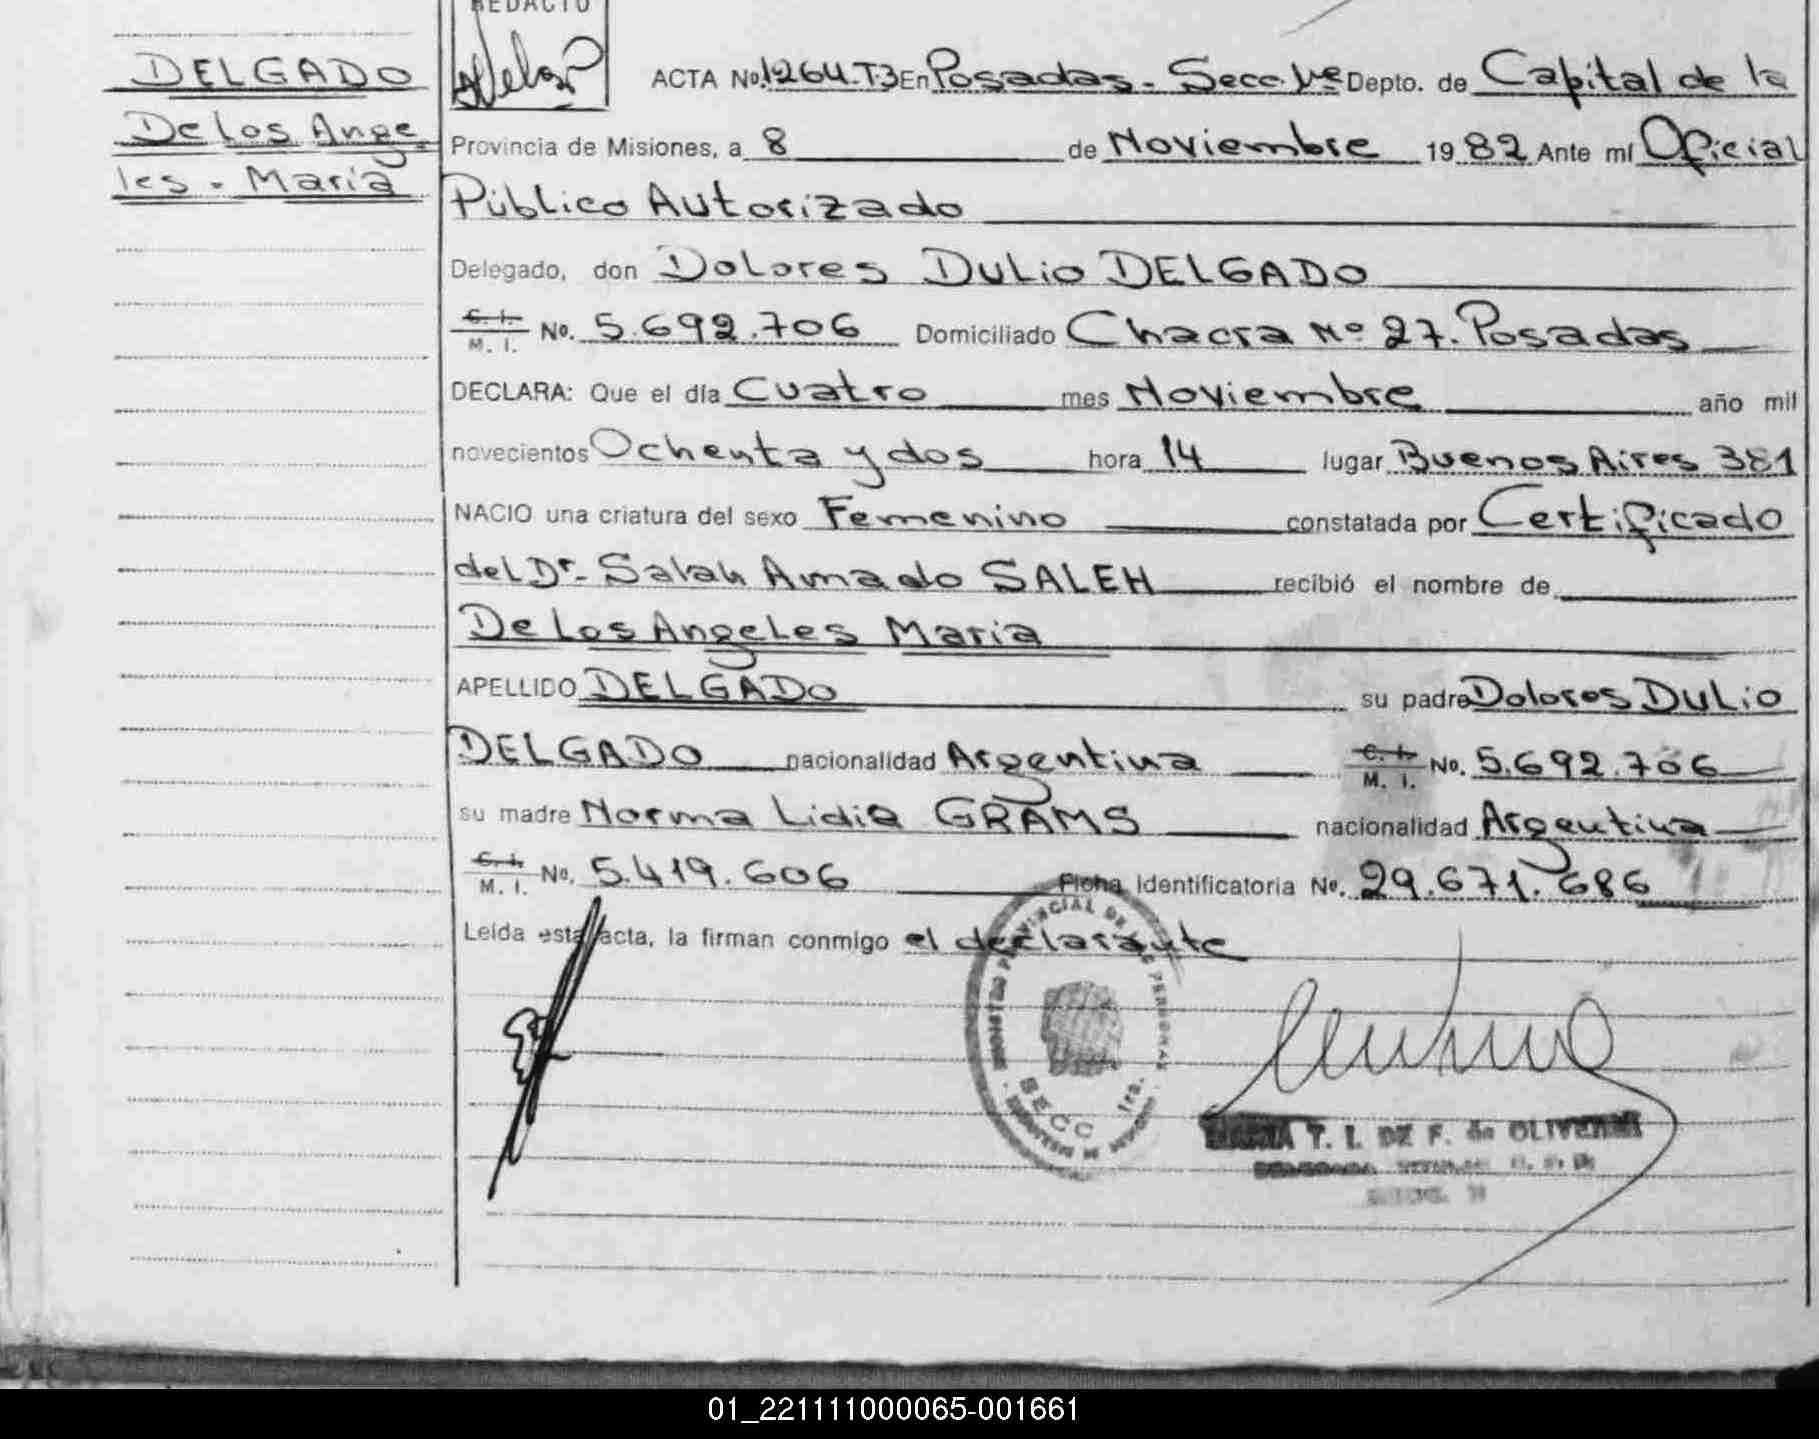 REDACTO
DELGADO
De los Ange
les - Maria
ACTA No. 1264.T.3 En Posadas - Secc. 1ra Depto. de Capital de la
Provincia de Misiones, a 8 de Noviembre 1982 Ante mí Oficial
Público Autorizado
Delegado, don Dolores Dulio DELGADO
C. I.
M. I. No. 5.692.706 Domiciliado Chacra Nº 27. Posadas
DECLARA: Que el día Cuatro mes Noviembre año mil
novecientos Ochenta y dos hora 14 lugar Buenos Aires 381
NACIO una criatura del sexo Femenino constatada por Certificado
del Dr. Salah Amado SALEH recibió el nombre de
De los Angeles Maria
APELLIDO DELGADO su padre Dolores Dulio
DELGADO nacionalidad Argentina C. I.
M. I. No. 5.692.706
su madre Norma Lidia GRAMS nacionalidad Argentina
C. I.
M. I. No. 5.419.606 Ficha Identificatoria No. 29.671.686
Leída esta acta, la firman conmigo el declarante
SECC 1ra.
T. I. DE F. de OLIVEIRA
01_221111000065-001661